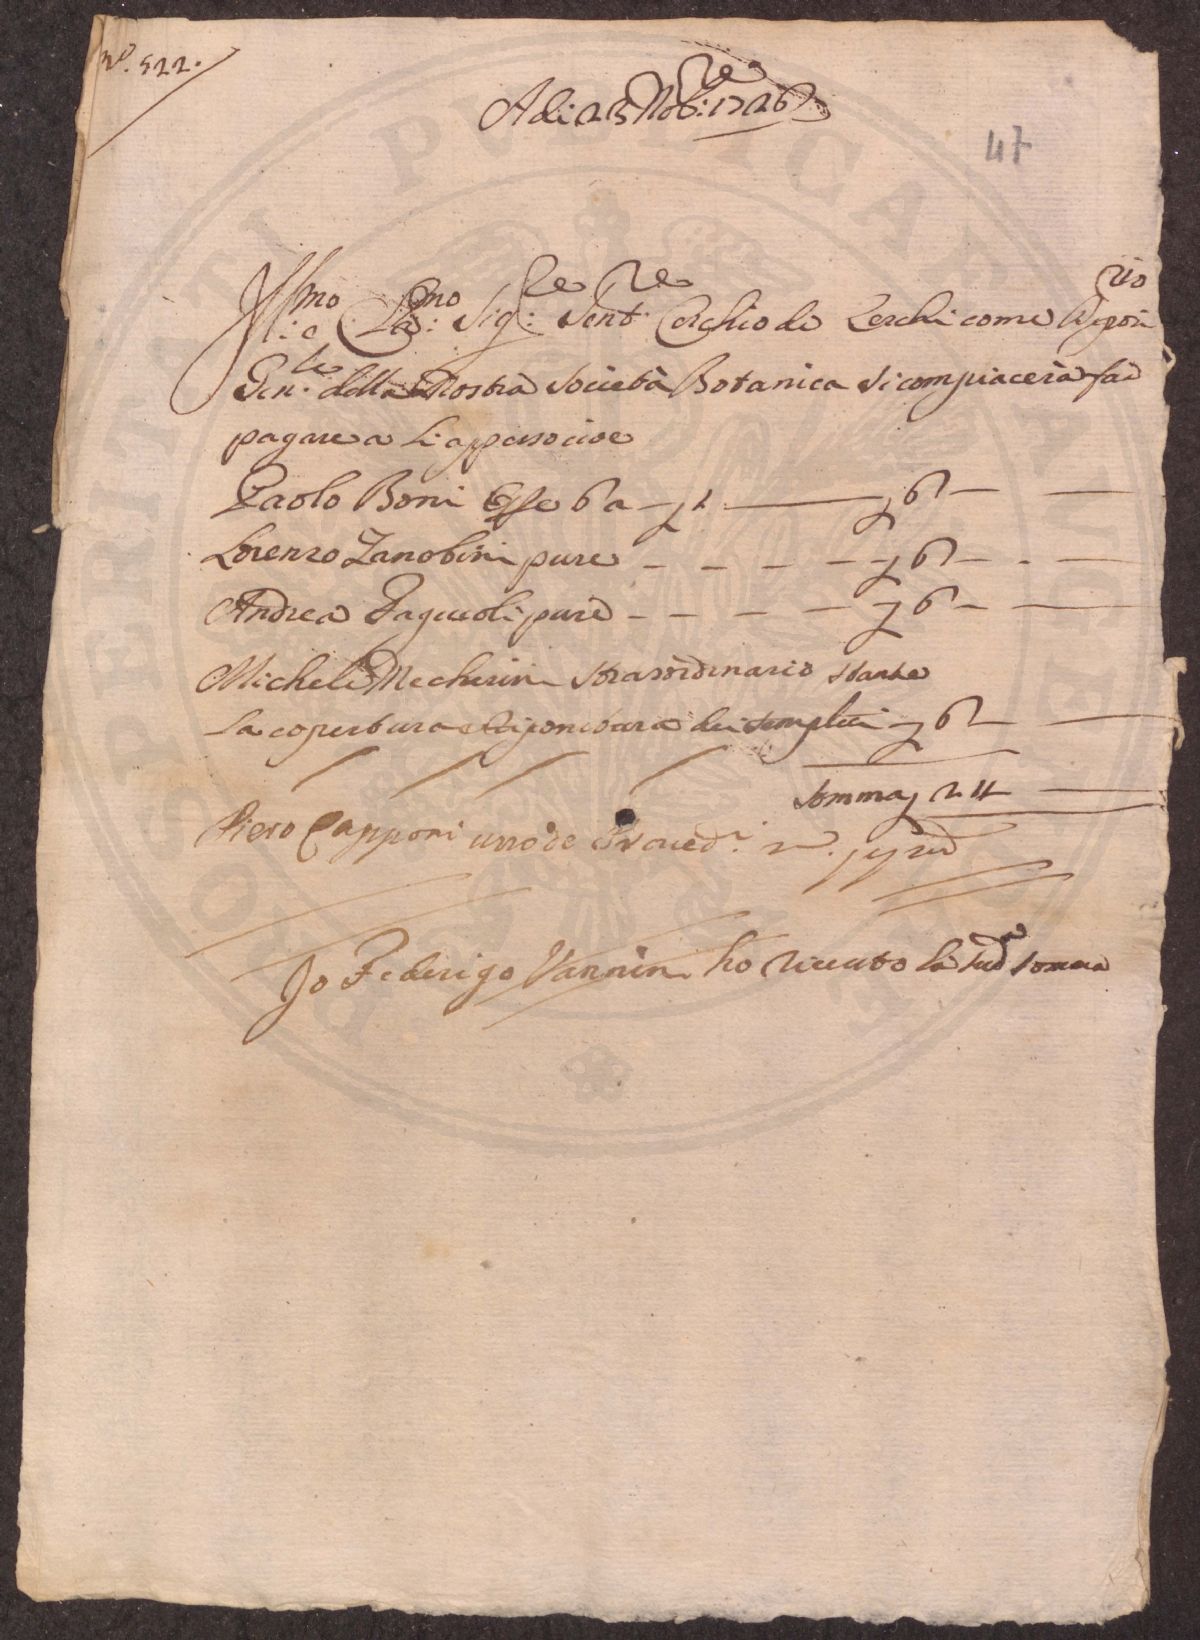 N.º 522.
Adi 23 Nob:re 1726
47
Ill:mo e Cla:mo Sig:re Sent:re Cerchio de Cerchi come Depos:rio
Gen:le della Nostra Società Botanica si compiacerà far
pagare a li appresso cioe
Paolo Boni Ope 6 a 6
Lorenzo Zanobini pure 6
Andrea Fagiuoli pure 6
Michele Mecherini straordinario stante
la copertura e riponitura dei semplici 6
Somma 24
Piero Capponi uno de Proved.ri
Io Federigo Vannini ho riceuto la sud.a somma
PUBLICAE